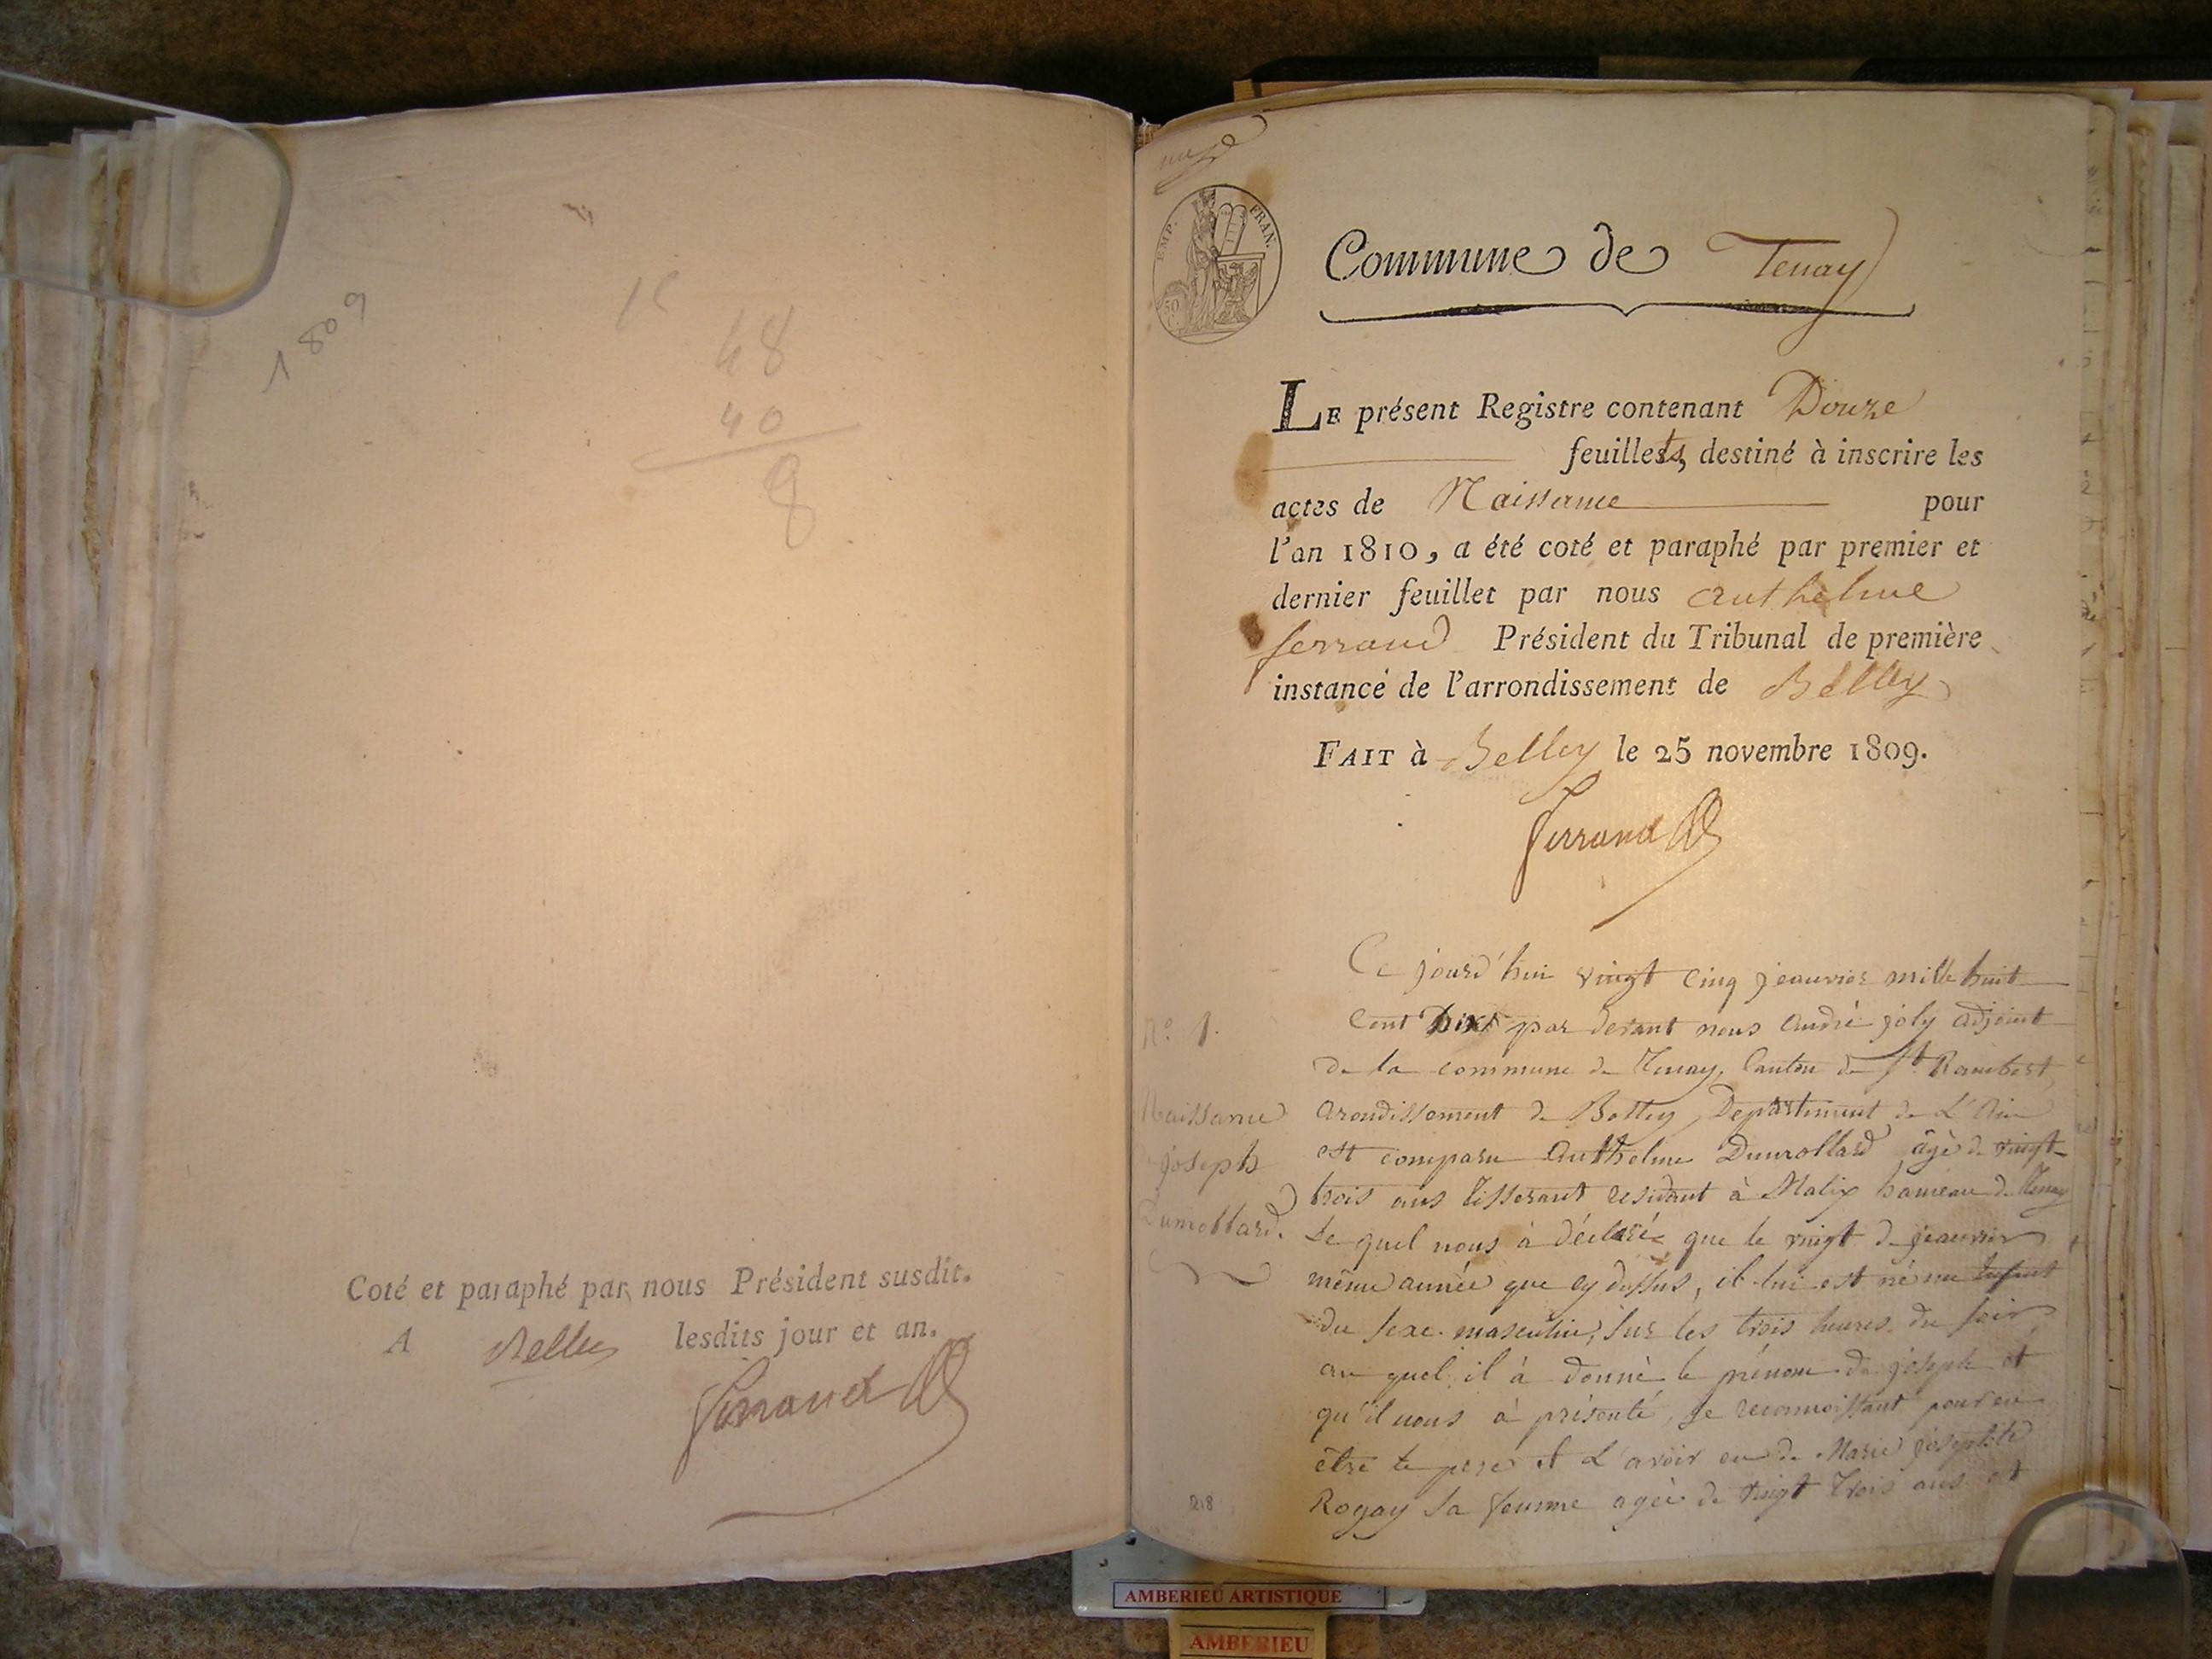 1809
15
48
40
8
Coté et paraphé par nous Président susdit.
A Belley lesdits jour et an.
Ferrand
EMP. FRAN.
50
Commune de Tenay
LE présent Registre contenant Douze
feuillets, destiné à inscrire les
actes de Naissance pour
l'an 1810, a été coté et paraphé par premier et
dernier feuillet par nous Anthelme
ferrand Président du Tribunal de première
instance de l'arrondissement de Belley
FAIT à Belley le 25 novembre 1809.
Ferrand
N.º 1.
Naissance
joseph
Dumollard.
Ce jourd'hui vingt cinq jeanvier mille huit
Cent Dix par devant nous André joly adjoint
de la commune de Tenay, Canton de St. Rambert
Arondissement de Belley, Departiment de L'Ain
est comparu Anthelme Dumollard âgé de vingt
trois ans tisserant residant à Malix hameau de Tenay
Le quel nous à déclaré que le vingt de jeanvier
même année que cy dessus, il lui est né un Enfant
du sexe masculin, sur les trois heures du soir
au quel il à donné le prénom de joseph et
qu'il nous à présenté, se reconnoissant pour en
être le pere et L'avoir eu de Marie josephte
Rogay sa femme agée de vingt trois ans et
218
AMBERIEU ARTISTIQUE
AMBERIEU